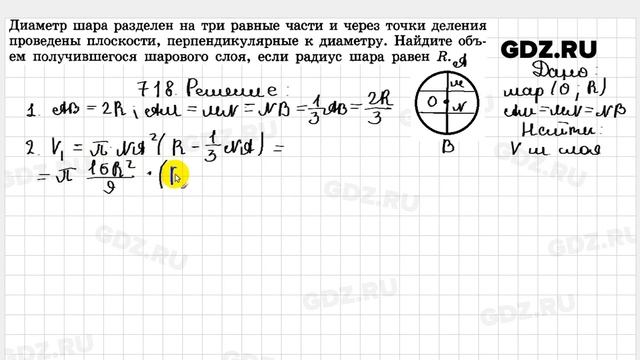 Диаметр шара разделен на три равные части и через точки деления
проведены плоскости, перпендикулярные к диаметру. Найдите объ-
ем получившегося шарового слоя, если радиус шара равен R.
GDZ.RU
718. Решение:
1. AB = 2R; AM = MN = NB = 1/3 AB = 2R/3
2. V₁ = π · NA² (R - 1/3 NA) =
= π 16R²/9 · (
A
M
O
N
B
Дано:
шар (O; R)
AM = MN = NB
Найти:
V ш слоя
GDZ.RU
GDZ.RU
GDZ.RU
GDZ.RU
GDZ.RU